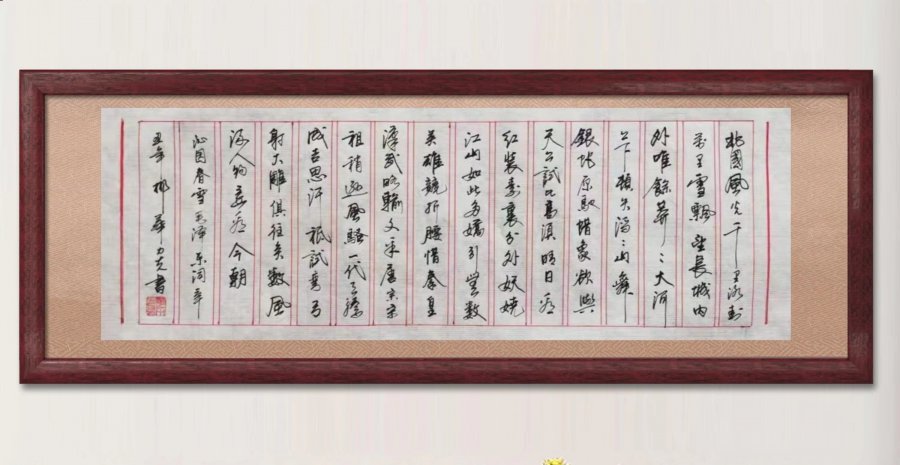 北國風光千里冰封
萬里雪飄望長城內
外唯餘莽〻大河
上下頓失滔〻山舞
銀蛇原馳蜡象欲與
天公試比高須晴日看
紅裝素裹分外妖嬈
江山如此多嬌引無數
英雄競折腰惜秦皇
漢武略輸文采唐宗宋
祖稍遜風騷一代天驕
成吉思汗祇識彎弓
射大雕俱往矣數風
流人物還看今朝
沁園春雪毛澤東詞辛
丑年 書